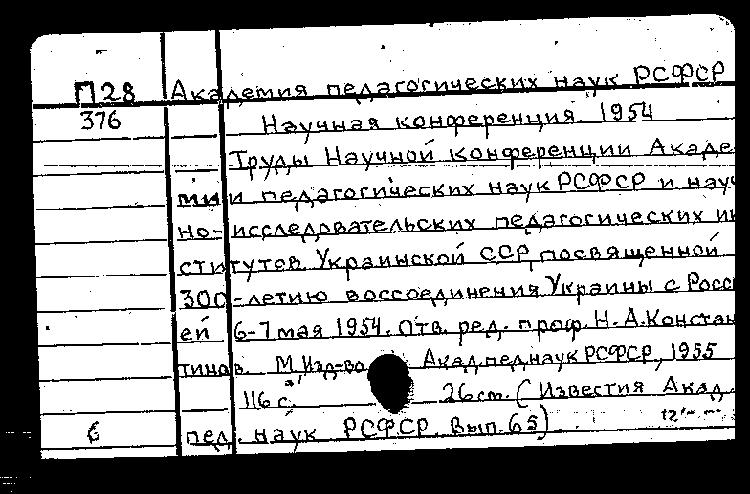 П28 Академия педагогических наук РСФСР
376 Научная конференция. 1954
Труды Научной конференции Акаде
мии педагогических наук РСФСР и науч
но-исследовательских педагогических ин
ститутов Украинской ССР, посвященной
300-летию воссоединения Украины с Росси
ей 6-7 мая 1954. Отв. ред. проф. Н. А. Констан
тинов. М. Изд-во Акад. пед. наук РСФСР, 1955
116 с. 26 см. (Известия Акад.
6 пед. наук РСФСР. Вып. 65)